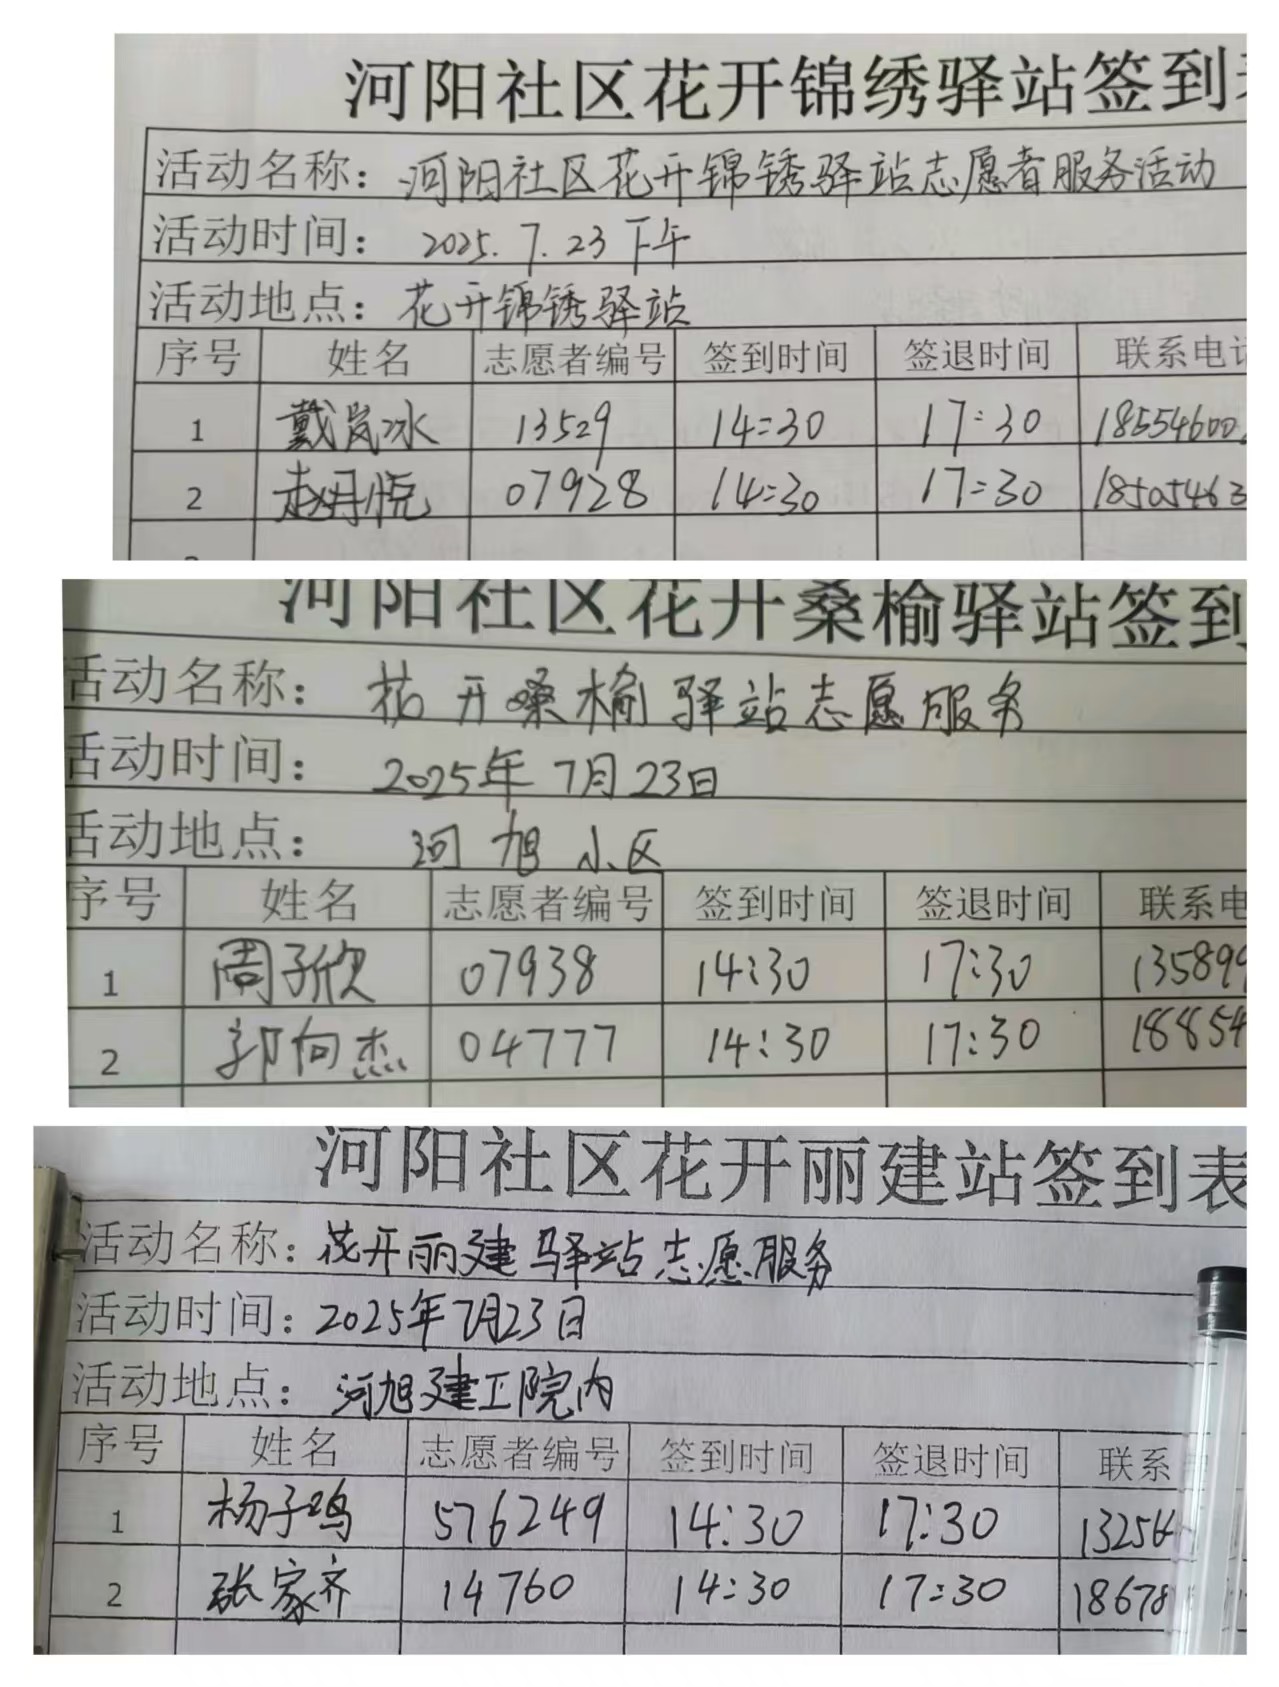 河阳社区花开锦绣驿站签到
活动名称：河阳社区花开锦锈驿站志愿者服务活动
活动时间：2025.7.23下午
活动地点：花开锦锈驿站
序号 姓名 志愿者编号 签到时间 签退时间 联系电
1 戴岚冰 13529 14:30 17:30 18554600
2 赵丹悦 07928 14:30 17:30 18505463
河阳社区花开桑榆驿站签到
活动名称：花开嗓榆驿站志愿服务
活动时间：2025年7月23日
活动地点：河旭小区
序号 姓名 志愿者编号 签到时间 签退时间 联系电
1 周子欣 07938 14:30 17:30 135899
2 郭向杰 04777 14:30 17:30 18854
河阳社区花开丽建站签到表
活动名称：花开丽建驿站志愿服务
活动时间：2025年7月23日
活动地点：河旭建工院内
序号 姓名 志愿者编号 签到时间 签退时间 联系
1 杨子鸣 576249 14:30 17:30 13256
2 张家齐 14760 14:30 17:30 18678